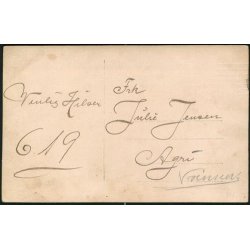 Venlig Hilsen
619
Frk
Julie Jensen
Agri